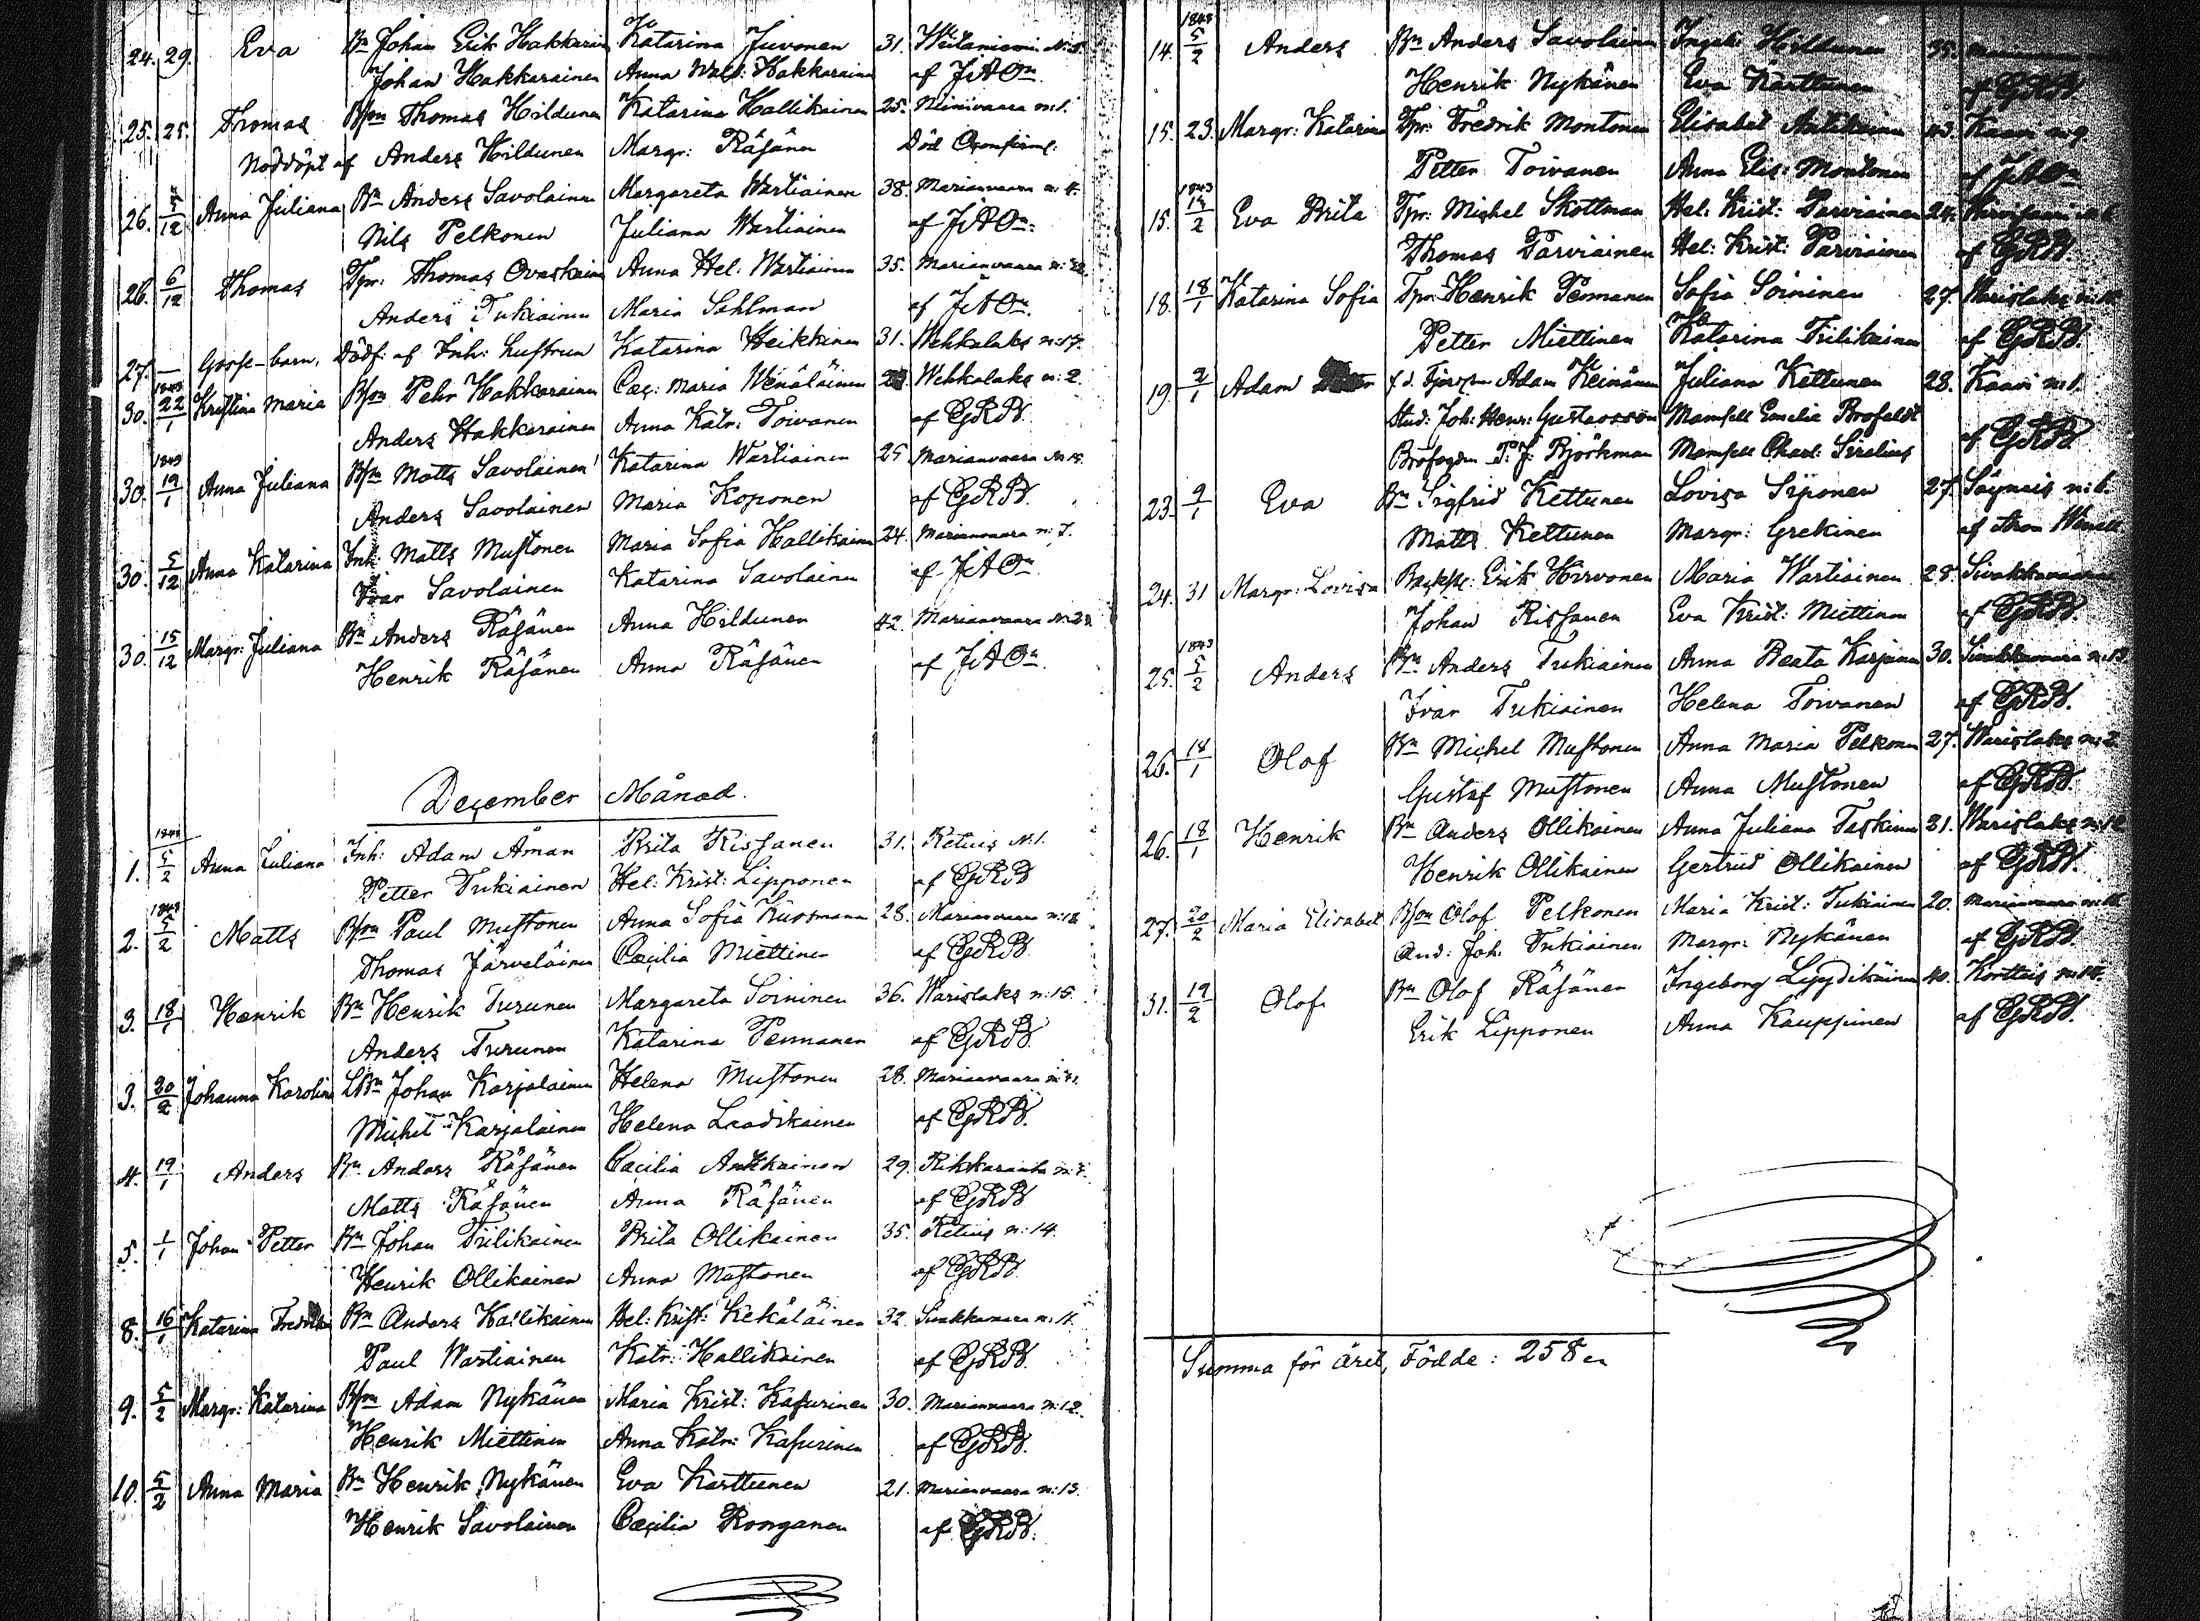 24. 29. Eva Bn Johan Erik Hakkarain Katarina Juvonen 31. Weitaniemi N:8.
Johan Hakkarainen Anna Walb: Hakkarain af JAOn.
25. 25. Thomas Bson Thomas Hildunen Katarina Hallikainen 25. Niinivaara n:1.
Nöddöpt af Anders Hildunen Margr: Räsänen Död Oconfirm:
26. 4/12 Anna Juliana Bn Anders Savolainen Margareta Wartiainen 38. Marianvaara n: 4.
Nils Pelkonen Juliana Wartiainen af JAOn.
26. 6/12 Thomas Tpr: Thomas Ovaskain Anna Hel: Wartiainen 35. Marianvaara n:
Anders Tukiainen Maria Sahlman af JAOn.
27. — Gosse-barn, Dödf: af Inh: Lustrun Katarina Heikkinen 31. Wehkalaks n:17.
30. 1843 22/1 Kristina Maria Bson Pehr Hakkarainen Cæc: Maria Wenäläinen Wehkalaks n: 2.
Anders Hakkarainen Anna Katr: Toivanen af GRB.
30. 1843 19/1 Anna Juliana Bson Matts Savolainen Katarina Wartiainen 25 Marianvaara N:15.
Anders Savolainen Maria Koponen af GRB.
30. 5/12 Anna Katarina Inh: Matts Mustonen Maria Sofia Hallikain 24. Marianvaara n: 7.
Ivar Savolainen Katarina Savolainen af JAOn.
30. 15/12 Margr: Juliana Bn Anders Räsänen Anna Hildunen 42. Marianvaara N:2
Henrik Räsänen Anna Räsänen af JAOn.
December Månad.
1. 1843 5/2 Anna Juliana Inh: Adam Åman Brita Rissanen 31. Retuis N:1.
Petter Tukiainen Hel: Krist: Lipponen af GRB
2. 1843 5/2 Matts Bson Paul Mustonen Anna Sofia Kuosmanen 28. Marianvaara n:12.
Thomas Järveläinen Cæcilia Miettinen af GRB.
3. 18/1 Henrik Bn Henrik Turunen Margareta Soininen 36. Warislaks n:15.
Anders Turunen Katarina Pennanen af GRB.
3. 20/2 Johanna Karolina LBn Johan Karjalainen Helena Mustonen 28. Marianvaara
Michel Karjalainen Helena Laadikainen af GRB.
4. 19/1 Anders Bn Anders Räsänen Cæcilia Ankkainen 29. Rikkaranta n:
Matts Räsänen Anna Räsänen af GRB
5. 1/1 Johan Petter Bn Johan Tiilikainen Brita Ollikainen 35. Retuis n: 14.
Henrik Ollikainen Anna Mustonen af GRB.
8. 16/1 Katarina Fredrika Bn Anders Hallikainen Hel: Krist: Kekäläinen 32. Sivakkavaara n: 11.
Paul Wartiainen Katr: Hallikainen af GRB.
9. 5/2 Margr: Katarina Bson Adam Nykänen Maria Krist: Kasurinen 30. Marianvaara n:12.
Henrik Miettinen Anna Katr: Kasurinen af GRB.
10. 5/2 Anna Maria Bn Henrik Nykänen Eva Karttunen 21. Marianvaara n:13.
Henrik Savolainen Cæcilia Ronganen af GRB.
14. 1843 5/2 Anders Bn Anders Savolainen Ingeb: Hildunen 35.
Henrik Nykänen Eva Karttunen af GRB
15. 23. Margr: Katarina Tpr: Fredrik Montonen Elisabet Antikainen 43. Kaavi n:9
Petter Toivanen Anna Elis: Montonen af JAOn
15. 1843 14/2 Eva Brita Tpr: Michel Skottman Hel: Krist: Parviainen 24.
Thomas Parviainen Hel: Krist: Parviainen af GRB.
18. 18/1 Katarina Sofia Tpr: Henrik Pennanen Sofia Soininen 27. Warislaks n:
Petter Miettinen Katarina Tiilikainen af GRB.
19. 2/1 Adam f.d. Adam Keinänen Juliana Kettunen 28. Kaavi n:1.
Stud: Joh: Henr: Gustavsson Mamsell Emelia Brofeldt
Brofogden P: J: Björkman Mamsell Charl: Sirelius af GRB
23. 9/1 Eva Bn Sigfrid Kettunen Lovisa Siponen 27. Säyneis n:6.
Matts Kettunen Margr: Grekinen af Aron Wenell
24. 31 Margr: Lovisa Backst: Erik Hirvonen Maria Wartiainen 28. Sivakkavaara
Johan Rissanen Eva Krist: Miettinen af GRB.
25. 1843 5/2 Anders Bn Anders Tukiainen Anna Beata Karjainen 30. Sivakkavaara n:13
Ivar Tukiainen Helena Toivanen af GRB.
26. 18/1 Olof Bn Michel Mustonen Anna Maria Pelkonen 27. Warislaks n:2
Gustaf Mustonen Anna Mustonen af GRB.
26. 18/1 Henrik Bn Anders Ollikainen Anna Juliana Taskinen 31. Warislaks n:12
Henrik Ollikainen Gertrud Ollikainen af GRB.
27. 20/2 Maria Elisabet Bson Olof Pelkonen Maria Krist: Tukiainen 20. Marianvaara
And: Joh: Tukiainen Margr: Nykänen af GRB.
31. 19/2 Olof Bn Olof Räsänen Ingeborg Lyydikäinen 40. Korttais n:14.
Erik Lipponen Anna Kauppinen af GRB.
Summa för året, Födde: 258 n